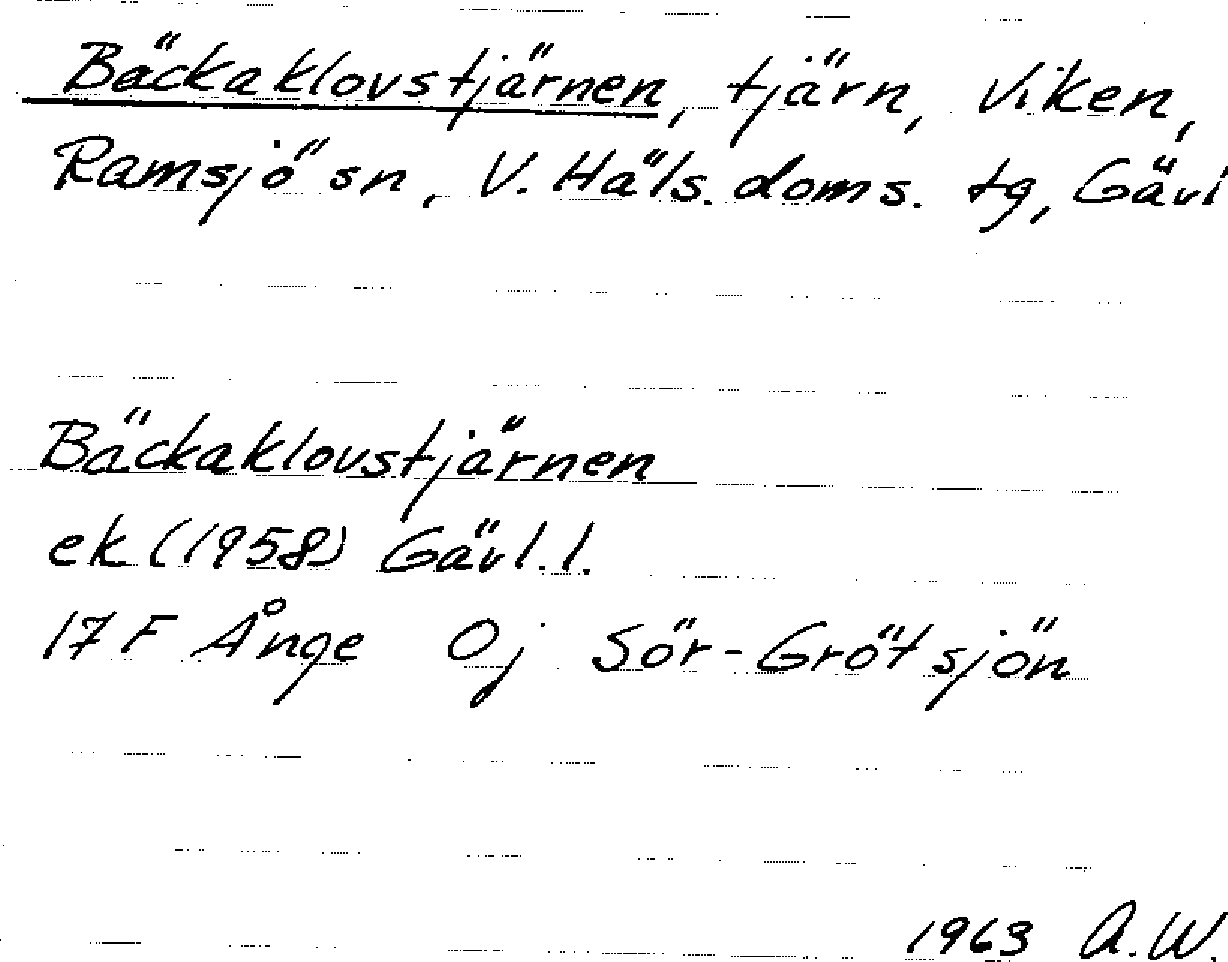 Bäckaklovstjärnen, tjärn, Viken,
Ramsjö sn, V. Häls. doms. tg, Gävl
Bäckaklovstjärnen
ek (1958) Gävl. l.
17 F Ånge 0j Sör-Grötsjön
1963 A.W.